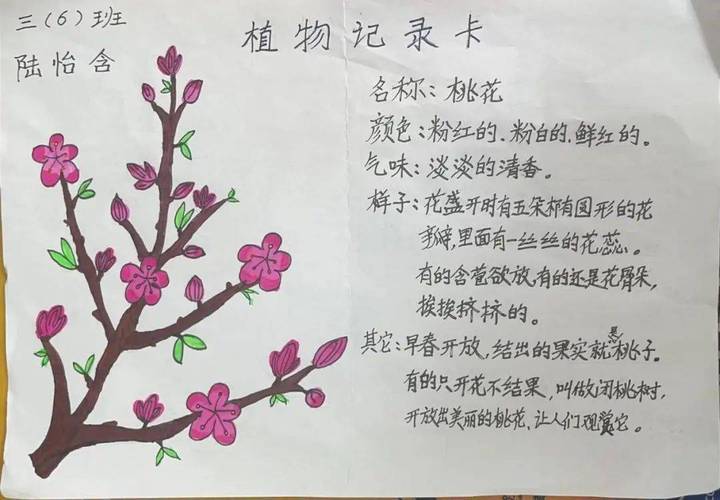 三(6)班
陆怡含
植物记录卡
名称：桃花
颜色：粉红的、粉白的、鲜红的。
气味：淡淡的清香。
样子：花盛开时有五朵椭有圆形的花
瓣，里面有一丝丝的花蕊。
有的含苞欲放，有的还是花骨朵，
挨挨挤挤的。
其它：早春开放，结出的果实就是桃子。
有的只开花不结果，叫做闭桃树，
开放出美丽的桃花，让人们观赏它。